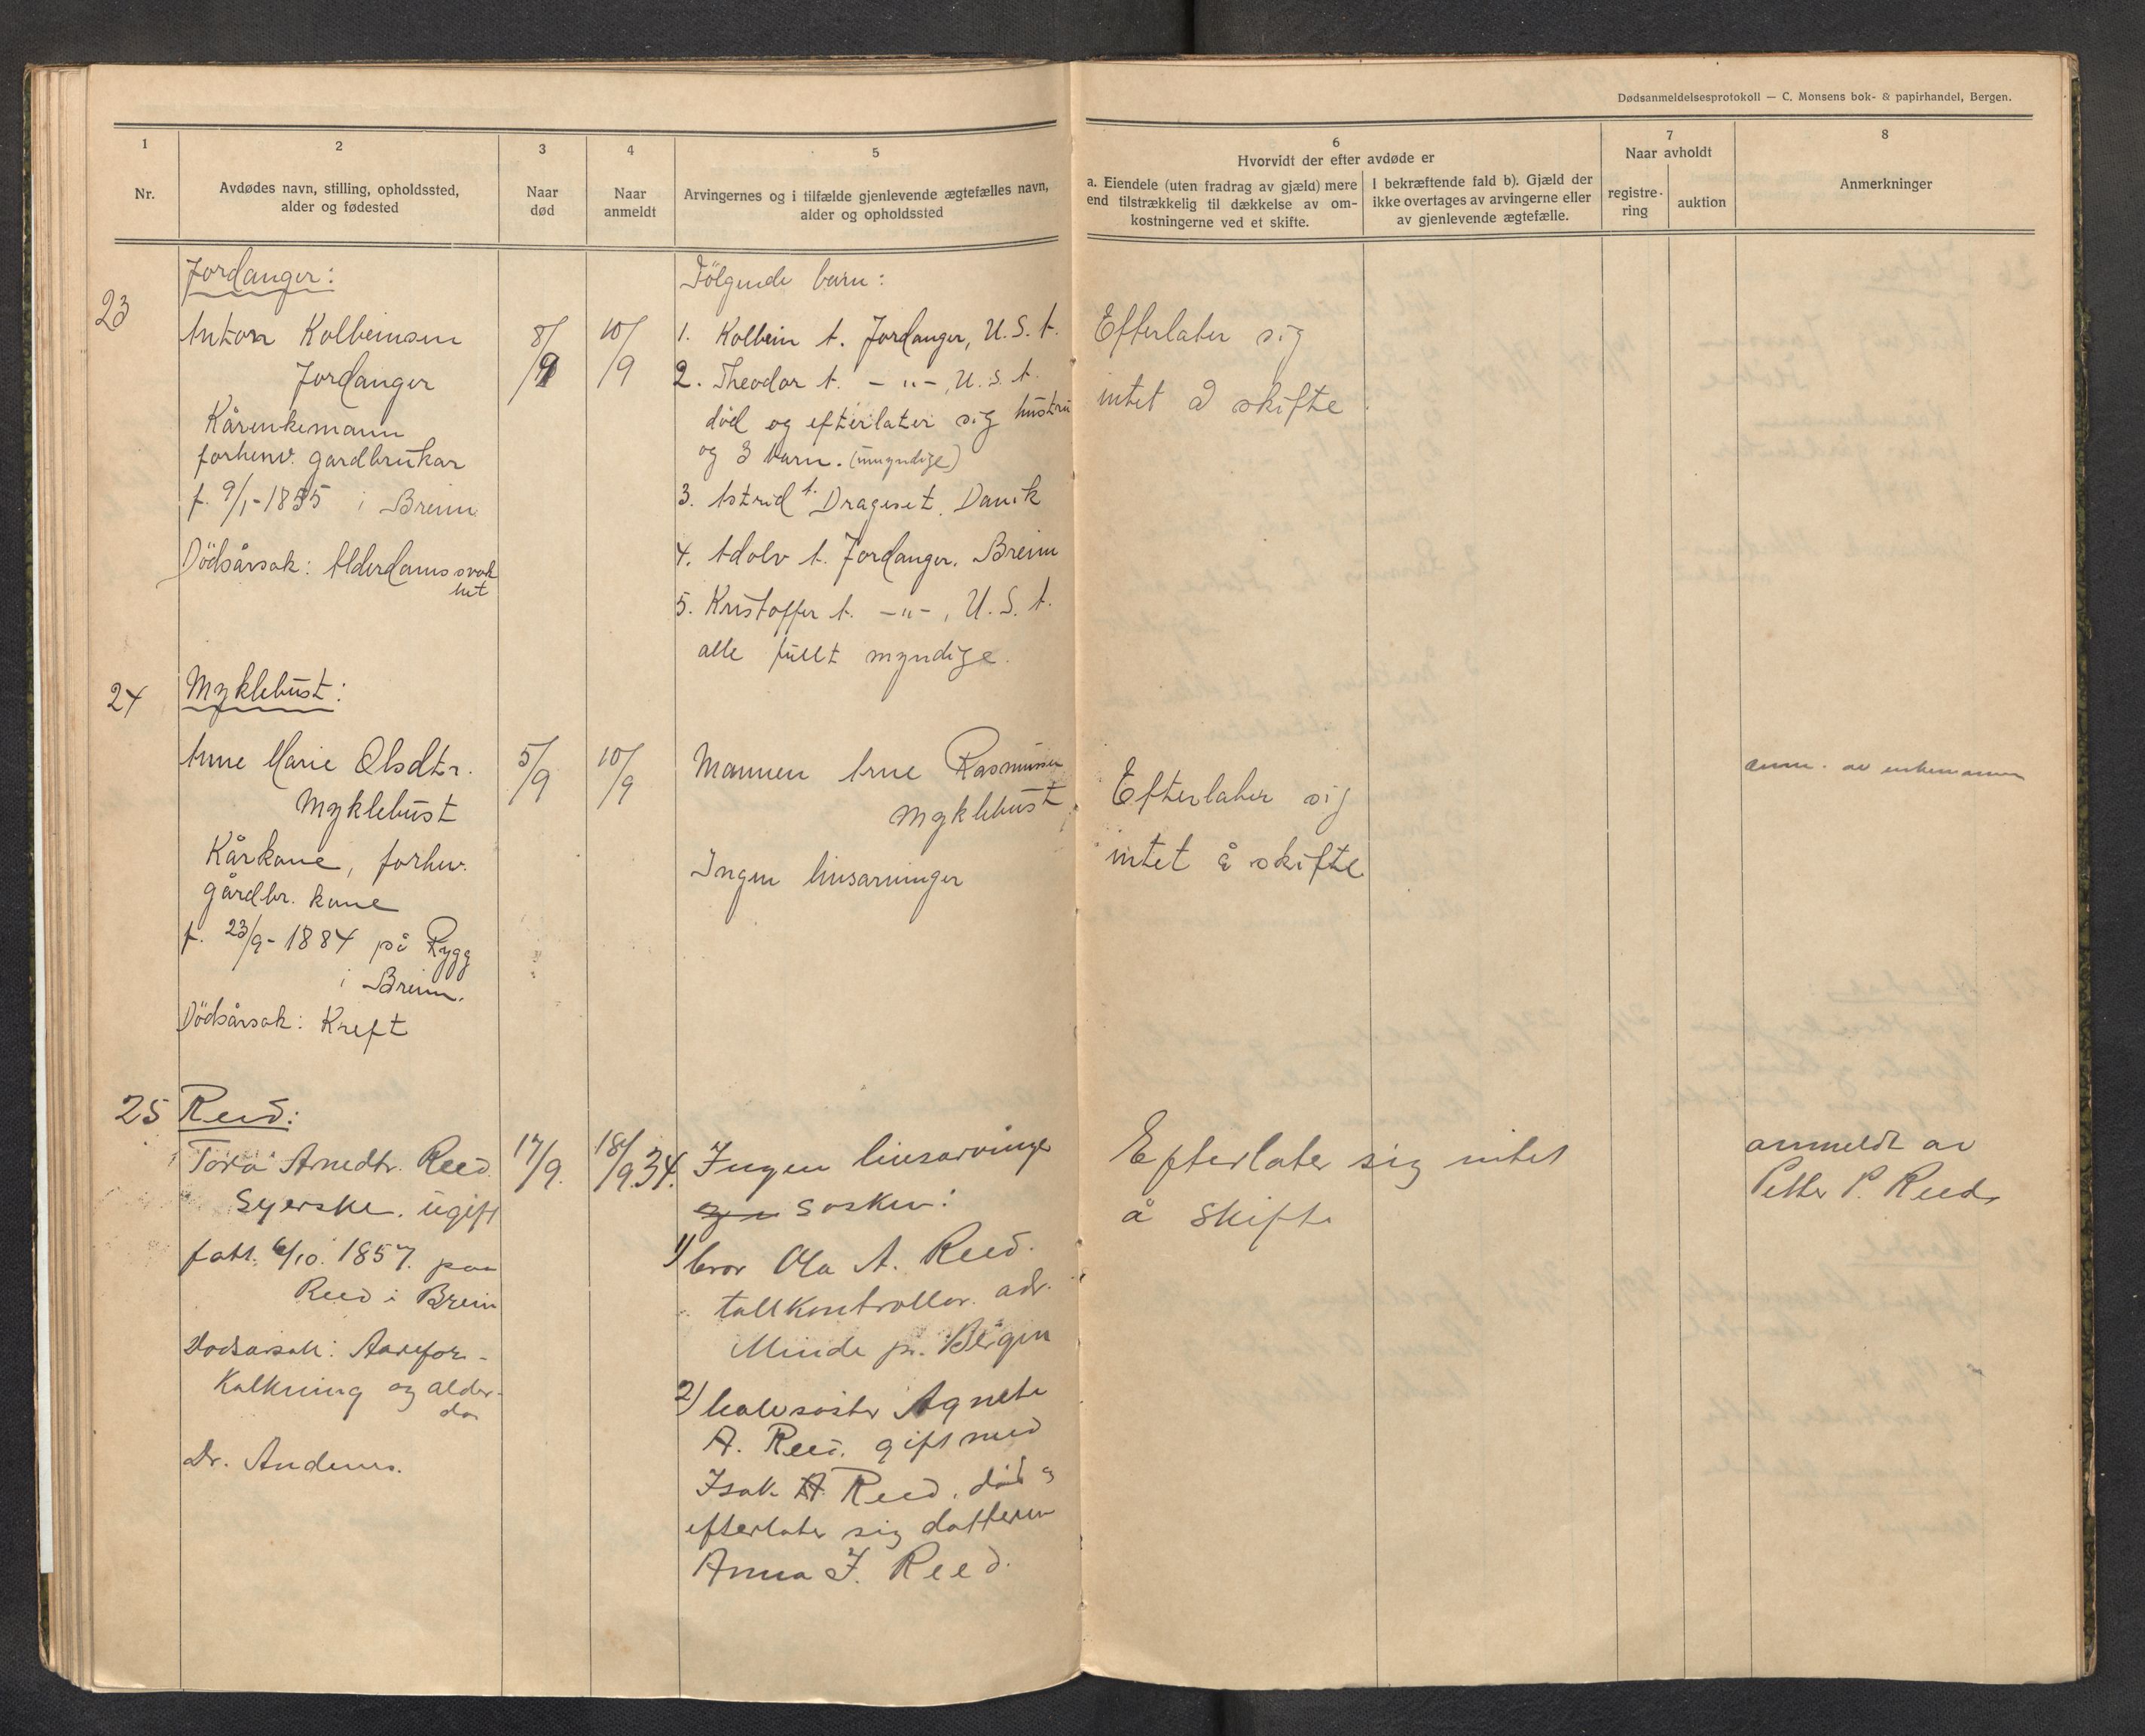 Dødsanmeldelsesprotokoll — C. Monsens bok- & papirhandel, Bergen.
1
Nr.
2
Avdødes navn, stilling, opholdssted,
alder og fødested
3
Naar
død
4
Naar
anmeldt
5
Arvingernes og i tilfælde gjenlevende ægtefælles navn,
alder og opholdssted
6
Hvorvidt der efter avdøde er
a. Eiendele (uten fradrag av gjæld) mere
end tilstrækkelig til dækkelse av om-
kostningerne ved et skifte.
I bekræftende fald b). Gjæld der
ikke overtages av arvingerne eller
av gjenlevende ægtefælle.
7
Naar avholdt
registre-
ring
auktion
8
Anmerkninger
23
Jordanger:
Anton Kolbeinsen
Jordanger
Kårenkemann
forhenv. gardbrukar
f. 9/1-1855 i Breim
Dödsårsak: Alderdamssvak
het
8/9
10/9
Fölgende barn:
1. Kolbein A. Jordanger, U.S.A.
2. Theodor A. -"-, U.S.A.
död og efterlater sig hustru
og 3 barn. (umyndige)
3. Astrid A. Drageset. Davik
4. Adolv A. Jordanger. Breim
5. Kristoffer A. -"-, U.S.A.
alle fullt myndige.
Efterlater sig
intet å skifte
24
Myklebust:
Anne Marie Olsdtr.
Myklebust
Kårkone, forhv.
gårdbr. kone
f. 23/9-1884 på Rygg
i Breim.
Dödsårsak: Kreft
5/9
10/9
Mannen Arne Rasmussen
Myklebust
Ingen livsarvinger
Efterlater sig
intet å skifte
anm. av enkemannen
25
Reed:
Tora Arnedtr. Reed
Syerske. ugift
født. 6/10. 1857. paa
Reed i Breim
Dødsarsak: Aarefor-
kalkning og alder-
dom
Dr. Andenes.
17/9.
18/9.34.
Ingen livsarvinge
søsken:
1) bror Ola A. Reed.
tollkontrollør. adr.
Minde pr. Bergen
2) halvsøster Agnete
A. Reed. gift med
Isak A Reed. død og
efterlater sig datteren
Anna I. Reed.
Efterlater sig intet
å skifte
anmeldt av
Petter P. Reed